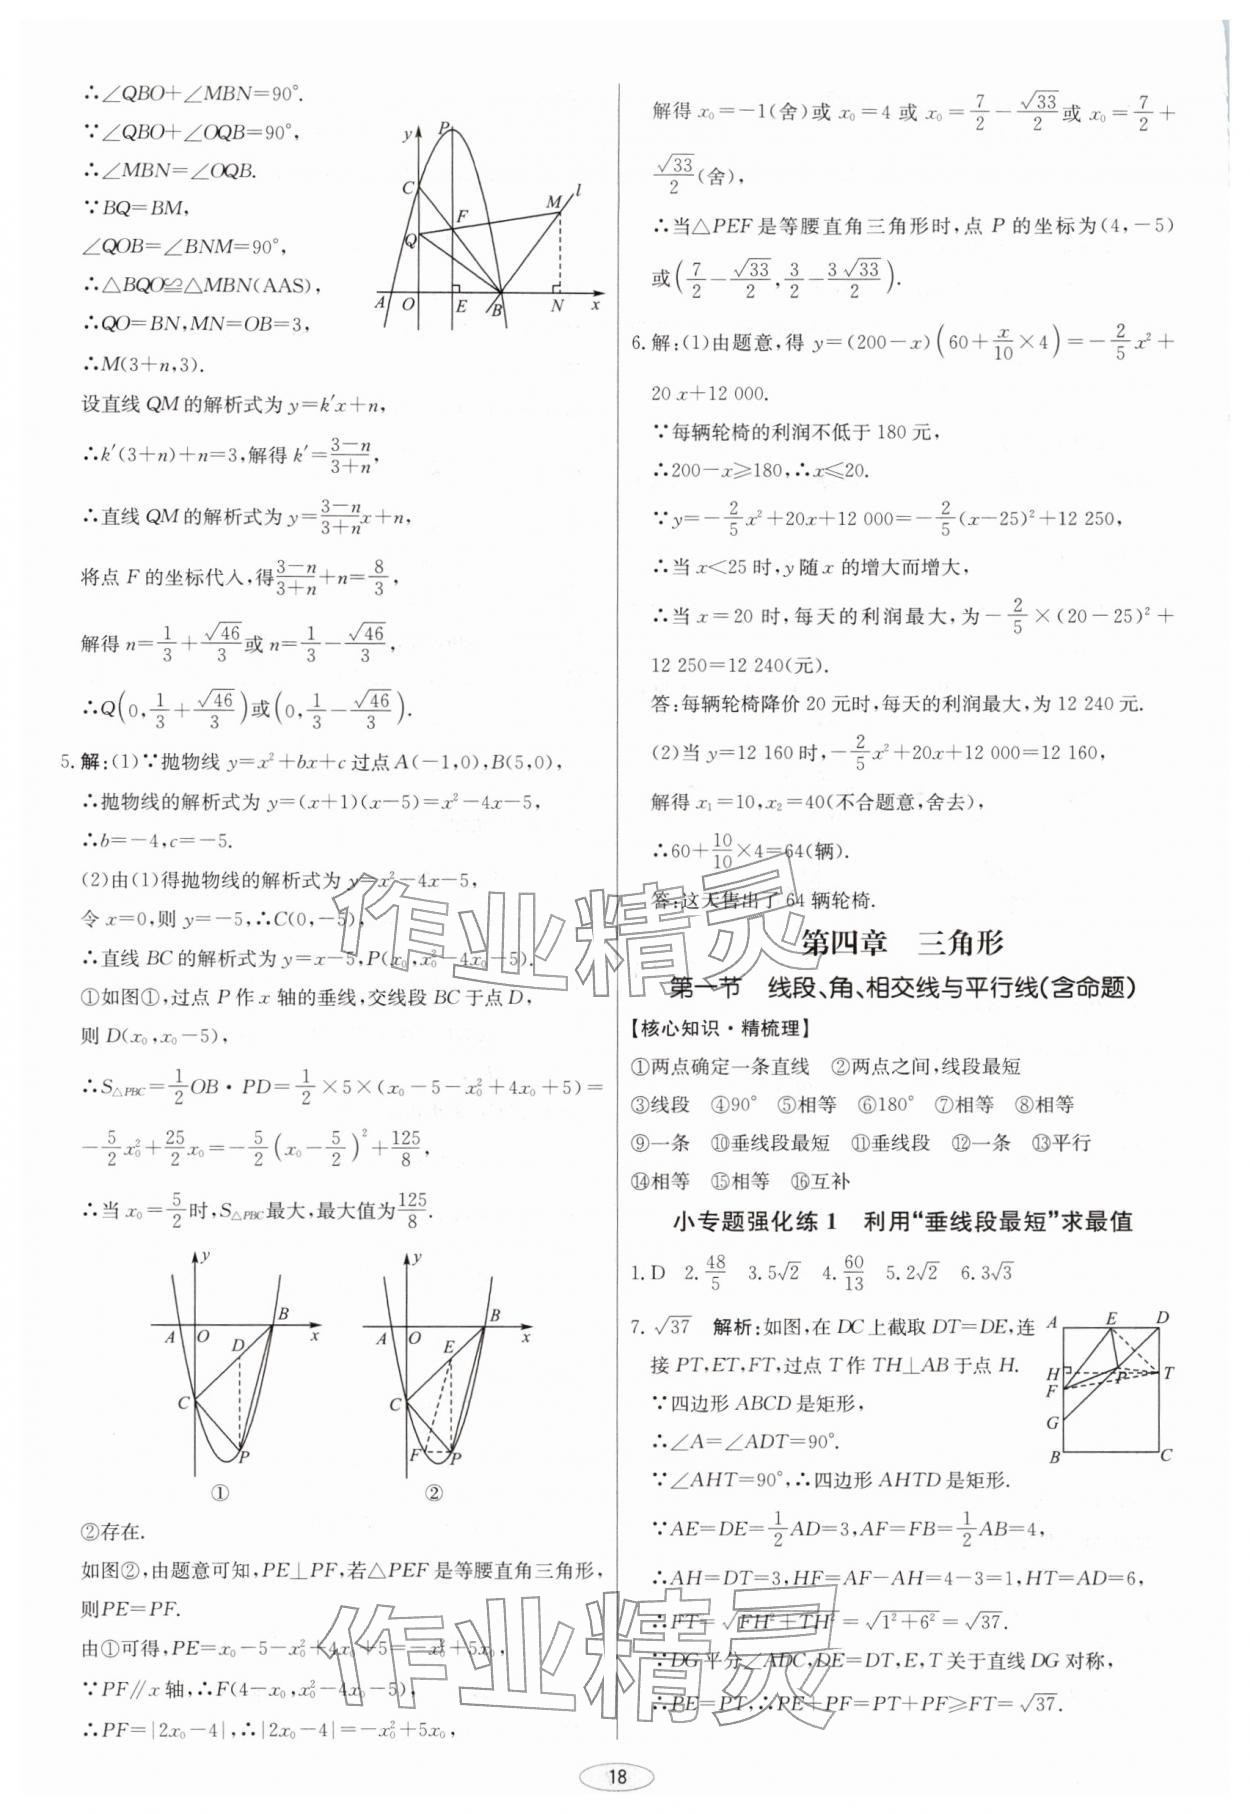 ∴∠QBO+∠MBN=90°.
∵∠QBO+∠OQB=90°,
∴∠MBN=∠OQB.
∵BQ=BM,
∠QOB=∠BNM=90°,
∴△BQO≌△MBN(AAS),
∴QO=BN,MN=OB=3,
∴M(3+n,3).
y P C F M l Q A O E B N x
设直线 QM 的解析式为 y=k′x+n,
∴k′(3+n)+n=3,解得 k′=\frac{3-n}{3+n},
∴直线 QM 的解析式为 y=\frac{3-n}{3+n}x+n,
将点 F 的坐标代入,得\frac{3-n}{3+n}+n=\frac{8}{3},
解得 n=\frac{1}{3}+\frac{\sqrt{46}}{3}或 n=\frac{1}{3}-\frac{\sqrt{46}}{3},
∴Q(0,\frac{1}{3}+\frac{\sqrt{46}}{3})或(0,\frac{1}{3}-\frac{\sqrt{46}}{3}).
5. 解:(1)∵抛物线 y=x²+bx+c 过点 A(-1,0),B(5,0),
∴抛物线的解析式为 y=(x+1)(x-5)=x²-4x-5,
∴b=-4,c=-5.
(2)由(1)得抛物线的解析式为 y=x²-4x-5,
令 x=0,则 y=-5,∴C(0,-5),
∴直线 BC 的解析式为 y=x-5,P(x₀,x₀²-4x₀-5).
①如图①,过点 P 作 x 轴的垂线,交线段 BC 于点 D,
则 D(x₀,x₀-5),
∴S△PBC=\frac{1}{2}OB·PD=\frac{1}{2}×5×(x₀-5-x₀²+4x₀+5)=
-\frac{5}{2}x₀²+\frac{25}{2}x₀=-\frac{5}{2}(x₀-\frac{5}{2})²+\frac{125}{8},
∴当 x₀=\frac{5}{2}时,S△PBC最大,最大值为\frac{125}{8}.
y A O B x D C P
①
y A O B x E C F P
②
②存在.
如图②,由题意可知,PE⊥PF,若△PEF 是等腰直角三角形,
则PE=PF.
由①可得,PE=x₀-5-x₀²+4x₀+5=-x₀²+5x₀,
∵PF∥x 轴,∴F(4-x₀,x₀²-4x₀-5),
∴PF=|2x₀-4|,∴|2x₀-4|=-x₀²+5x₀,
解得 x₀=-1(舍)或 x₀=4 或 x₀=\frac{7}{2}-\frac{\sqrt{33}}{2}或 x₀=\frac{7}{2}+
\frac{\sqrt{33}}{2}(舍),
∴当△PEF 是等腰直角三角形时,点 P 的坐标为(4,-5)
或(\frac{7}{2}-\frac{\sqrt{33}}{2},\frac{3}{2}-\frac{3\sqrt{33}}{2}).
6. 解:(1)由题意,得 y=(200-x)(60+\frac{x}{10}×4)=-\frac{2}{5}x²+
20x+12 000.
∵每辆轮椅的利润不低于 180 元,
∴200-x≥180,∴x≤20.
∵y=-\frac{2}{5}x²+20x+12 000=-\frac{2}{5}(x-25)²+12 250,
∴当 x<25 时,y 随 x 的增大而增大,
∴当 x=20 时,每天的利润最大,为-\frac{2}{5}×(20-25)²+
12 250=12 240(元).
答:每辆轮椅降价 20 元时,每天的利润最大,为 12 240 元.
(2)当 y=12 160 时,-\frac{2}{5}x²+20x+12 000=12 160,
解得 x₁=10,x₂=40(不合题意,舍去),
∴60+\frac{10}{10}×4=64(辆).
答:这天售出了 64 辆轮椅.
第四章 三角形
第一节 线段、角、相交线与平行线(含命题)
【核心知识·精梳理】
①两点确定一条直线 ②两点之间,线段最短
③线段 ④90° ⑤相等 ⑥180° ⑦相等 ⑧相等
⑨一条 ⑩垂线段最短 ⑪垂线段 ⑫一条 ⑬平行
⑭相等 ⑮相等 ⑯互补
小专题强化练 1 利用“垂线段最短”求最值
1. D 2. \frac{48}{5} 3. 5√2 4. \frac{60}{13} 5. 2√2 6. 3√3
7. √37 解析:如图,在 DC 上截取 DT=DE,连
接 PT,ET,FT,过点 T 作 TH⊥AB 于点 H.
∵四边形 ABCD 是矩形,
∴∠A=∠ADT=90°.
A E D H P T F G B C
∵∠AHT=90°,∴四边形 AHTD 是矩形.
∵AE=DE=\frac{1}{2}AD=3,AF=FB=\frac{1}{2}AB=4,
∴AH=DT=3,HF=AF-AH=4-3=1,HT=AD=6,
∴FT=\sqrt{FH²+TH²}=\sqrt{1²+6²}=√37.
∵DG 平分∠ADC,DE=DT,E,T 关于直线 DG 对称,
∴PE=PT,∴PE+PF=PT+PF≥FT=√37.
作业精灵
作业精灵
18